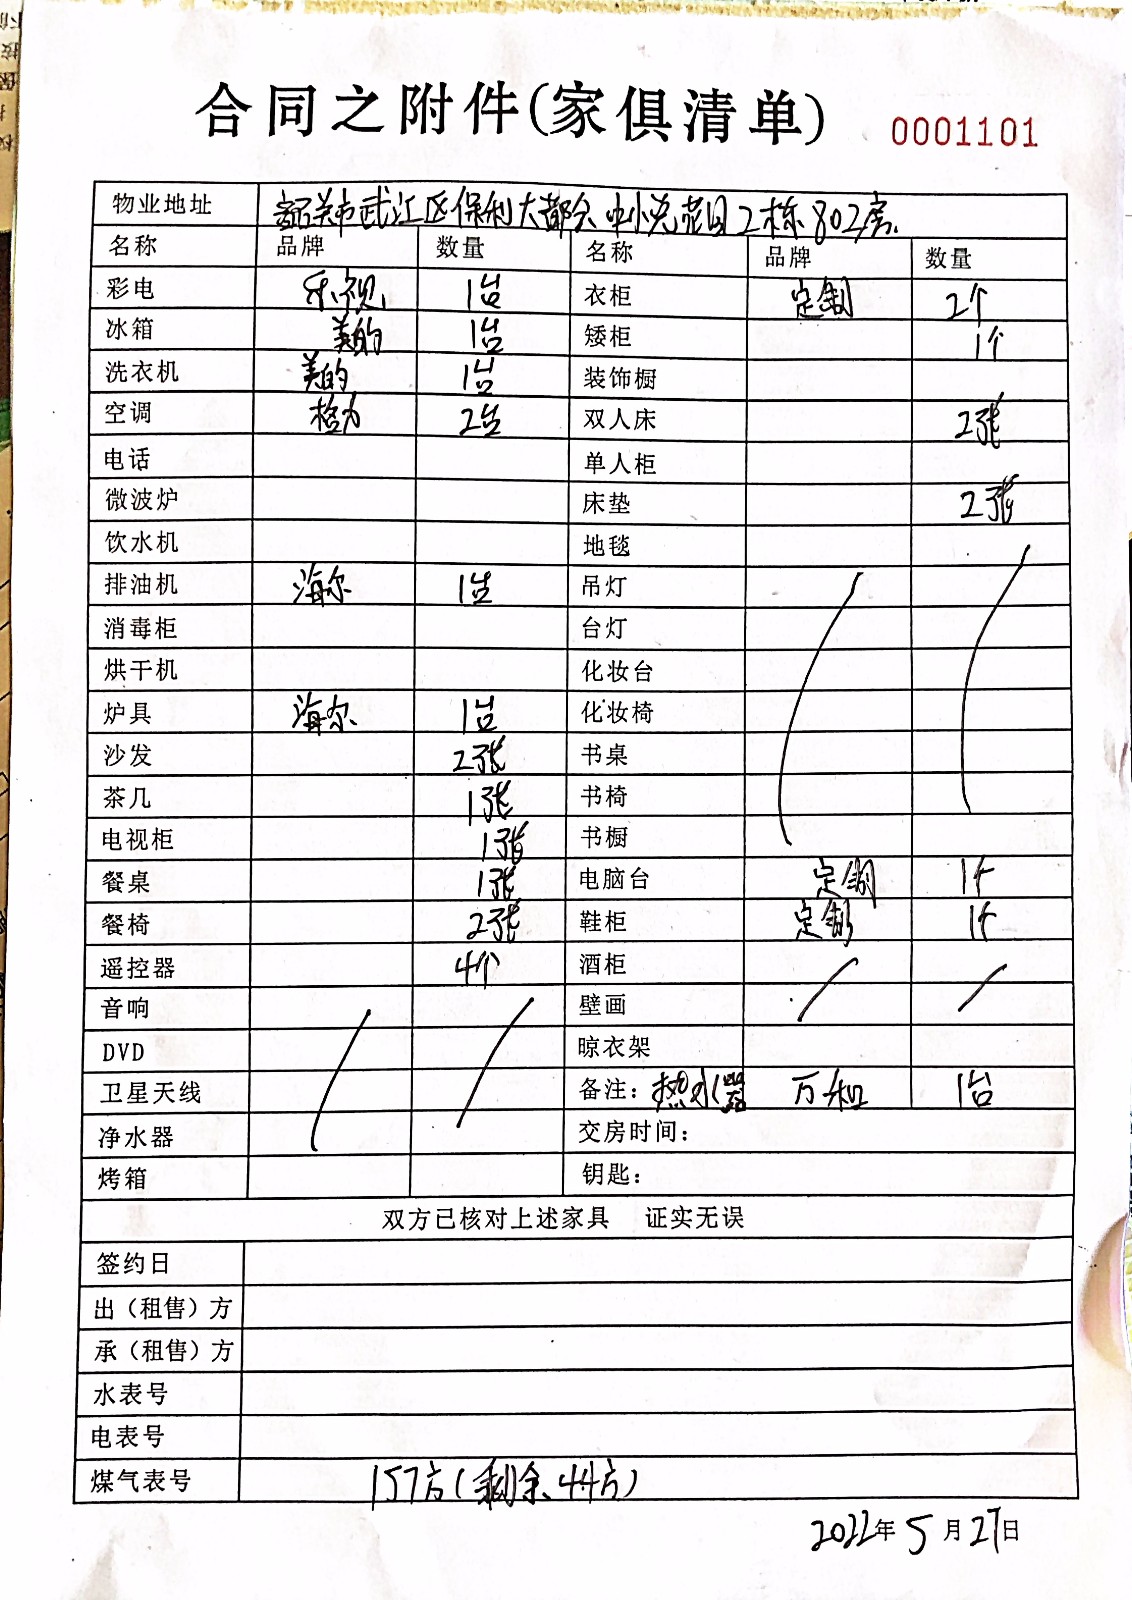 合同之附件(家俱清单) 0001101
物业地址 韶关市武江区保利大都会中小 花园2栋802房
名称 品牌 数量 名称 品牌 数量
彩电 乐视 1台 衣柜 定制 2个
冰箱 美的 1台 矮柜 1个
洗衣机 美的 1台 装饰橱
空调 格力 2台 双人床 2张
电话 单人柜
微波炉 床垫 2张
饮水机 地毯
排油机 海尔 1台 吊灯
消毒柜 台灯
烘干机 化妆台
炉具 海尔 1台 化妆椅
沙发 2张 书桌
茶几 1张 书椅
电视柜 1张 书橱
餐桌 1张 电脑台 定制 1个
餐椅 2张 鞋柜 定制 1个
遥控器 4个 酒柜
音响 壁画
DVD 晾衣架
卫星天线 备注：热水器 万和 1台
净水器 交房时间：
烤箱 钥匙：
双方已核对上述家具 证实无误
签约日
出（租售）方
承（租售）方
水表号
电表号
煤气表号 157方（剩余44方）
2022年5月27日